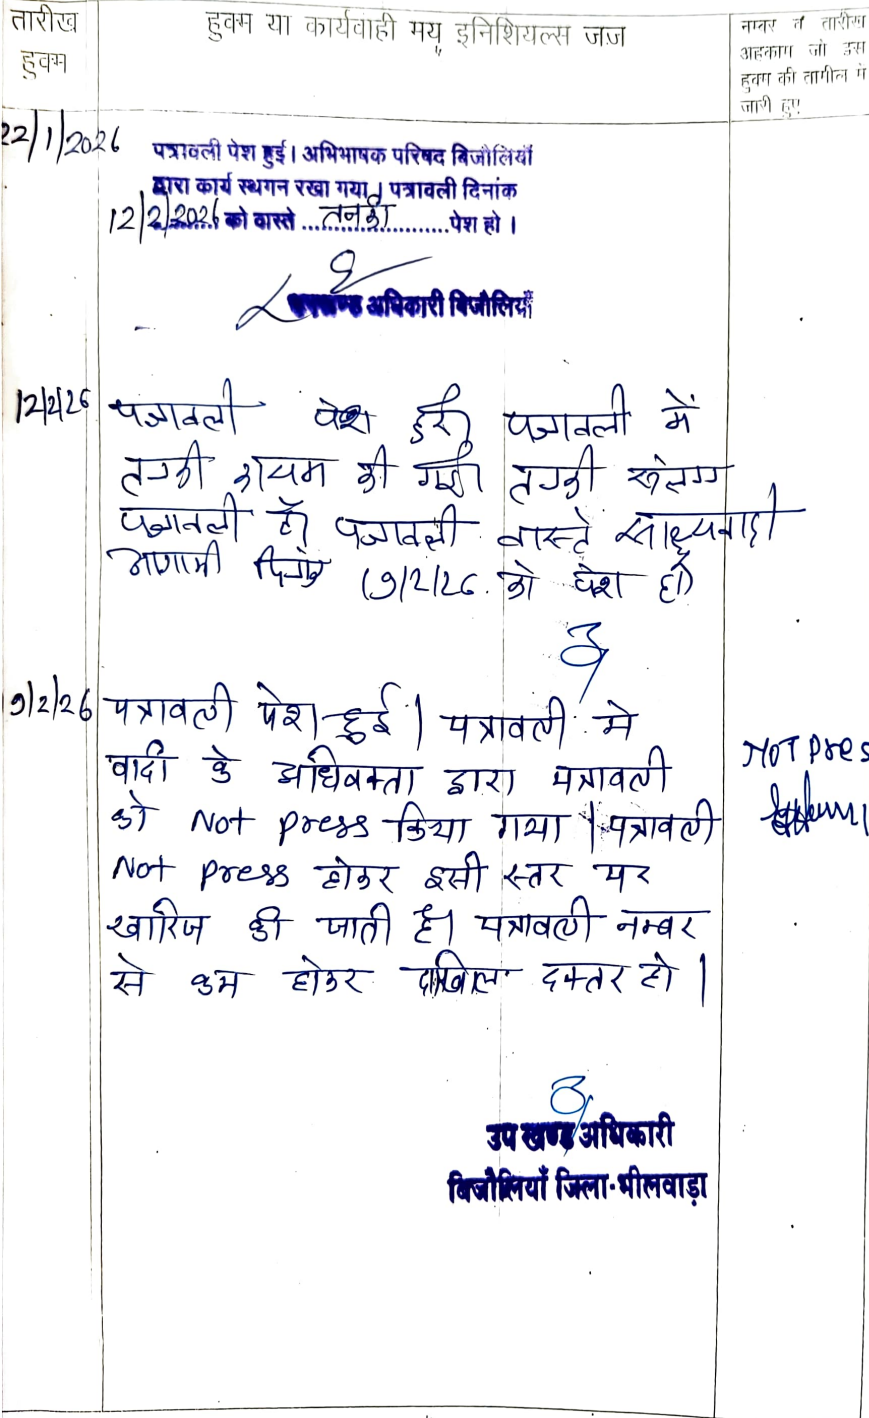 तारीख
हुक्म
हुक्म या कार्यवाही मय इनिशियल्स जज
नम्बर व तारीख
अहकाम जो इस
हुक्म की तामील में
जारी हुए
22/1/2026
पत्रावली पेश हुई। अभिभाषक परिषद बिजौलियाँ
द्वारा कार्य स्थगन रखा गया। पत्रावली दिनांक
12/2/2026 को वास्ते तनकी पेश हो।
उपखण्ड अधिकारी बिजौलियाँ
12/2/26
पत्रावली पेश हुई। पत्रावली में
तनकी कायम की गई। तनकी संलग्न
पत्रावली है। पत्रावली वास्ते साक्ष्यवादी
आगामी दिनांक 19/2/26 को पेश हो
19/2/26
पत्रावली पेश हुई। पत्रावली मे
वादी के अधिवक्ता द्वारा पत्रावली
को Not press किया गया। पत्रावली
Not press होकर इसी स्तर पर
खारिज की जाती है। पत्रावली नम्बर
से कम होकर दाखिल दफ्तर हो।
NOT Pres
उप खण्ड अधिकारी
बिजौलियाँ जिला-भीलवाड़ा